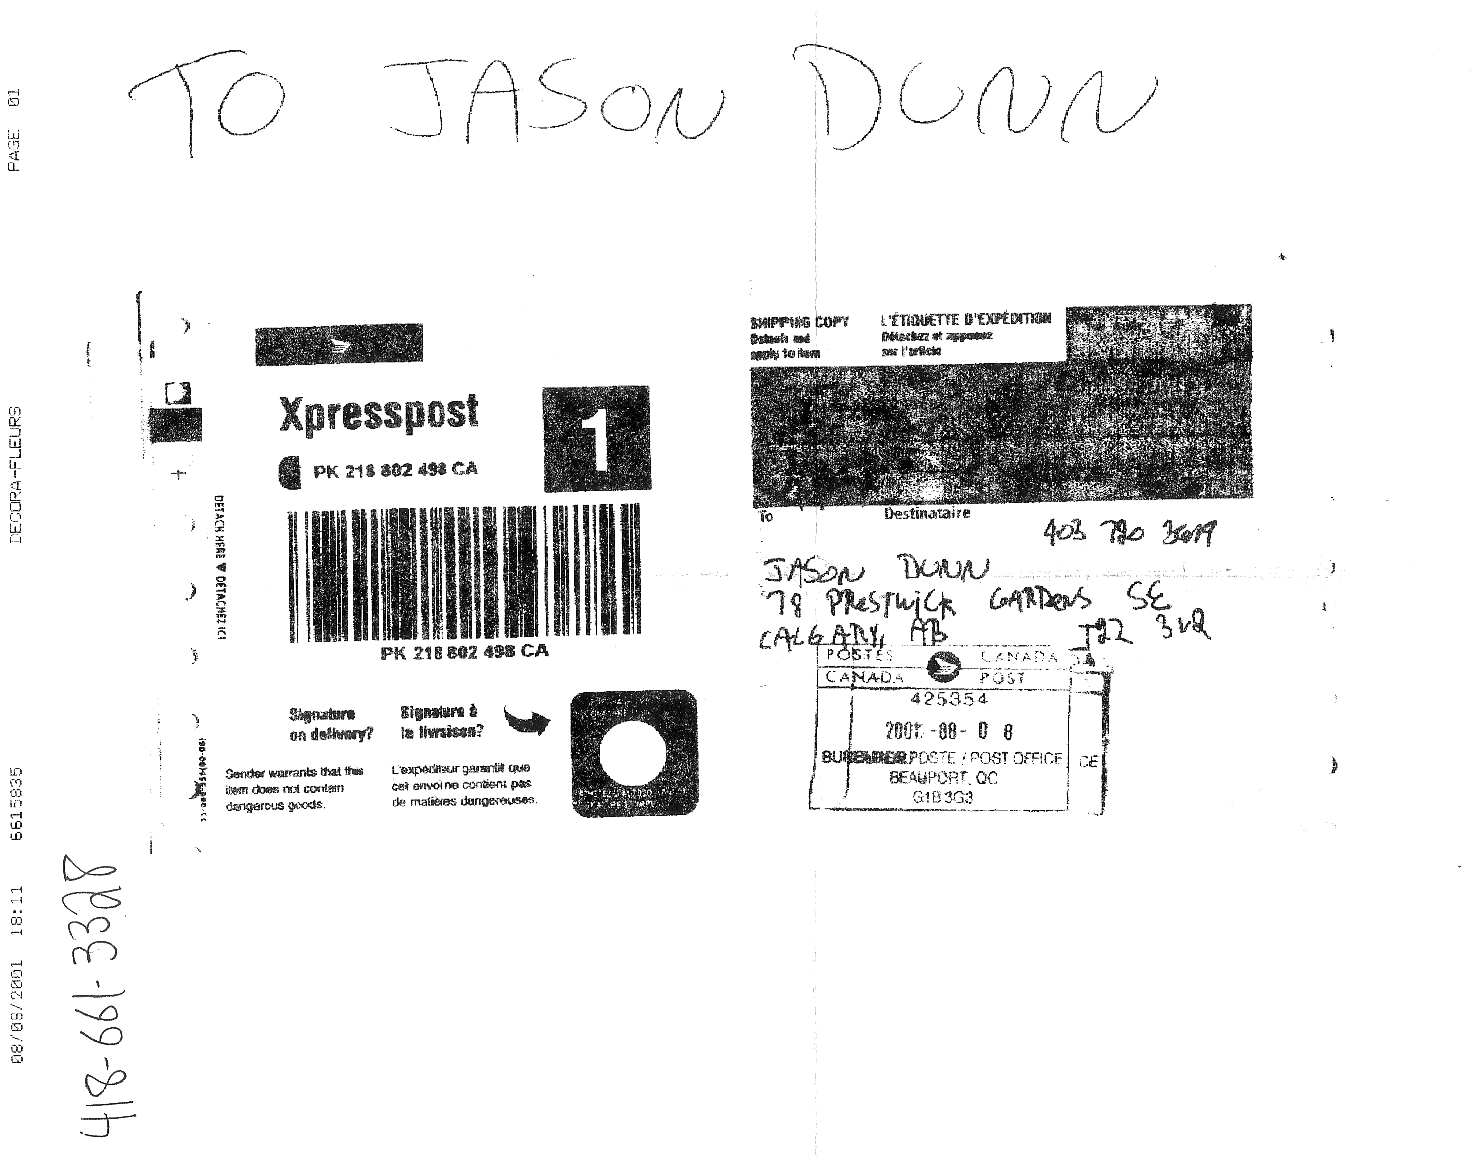 TO JASON DUNN
PAGE 01
DECORA-FLEURS
6615835
08/08/2001 18:11
418-661-3328
Xpresspost
1
PK 218 802 498 CA
DETACH HERE ▼ DETACHEZ ICI
PK 218 802 498 CA
Signature
on delivery?
Signature à
la livraison?
Sender warrants that this
item does not contain
dangerous goods.
L'expéditeur garantit que
cet envoi ne contient pas
de matières dangereuses.
SHIPPING COPY
Detach and
apply to item
L'ÉTIQUETTE D'EXPÉDITION
Détachez et apposez
sur l'article
To
Destinataire
403 720
JASON DUNN
78 PRESTWICK GARDENS SE
CALGARY, AB
POSTES CANADA
CANADA POST
425354
2001-08-08
POSTE / POST OFFICE
BEAUPORT, QC
G1B 3G3